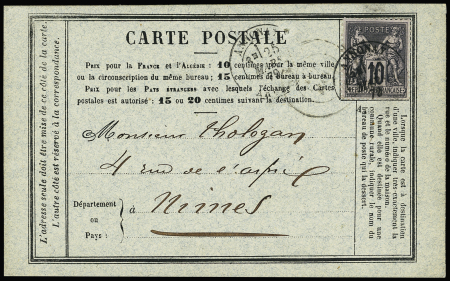 CARTE POSTALE
PRIX pour la FRANCE et l'ALGÉRIE : 10 centimes pour la même ville
ou la circonscription du même bureau; 15 centimes de bureau à bureau.
PRIX pour les PAYS ÉTRANGERS avec lesquels l'échange des Cartes
postales est autorisé : 15 ou 20 centimes suivant la destination.
POSTE
10
Monsieur Thologan
4 rue de l'aspic
à Nimes
Département
ou
Pays :
L'adresse seule doit être mise de ce côté de la carte.
L'autre côté est réservé à la correspondance.
Lorsque la carte est à destination
d'une ville, indiquer très-exactement la
rue et le numéro de la maison.
Quand elle est destinée pour une
commune rurale, indiquer le nom du
bureau de poste qui la dessert.